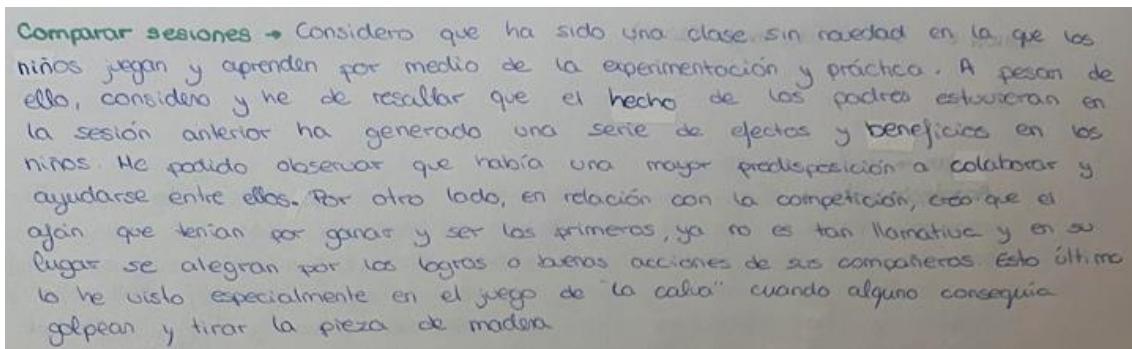 Comparar sesiones → Considero que ha sido una clase sin novedad en la que los
niños juegan y aprenden por medio de la experimentación y práctica. A pesar de
ello, considero y he de resaltar que el hecho de los padres estuvieran en
la sesión anterior ha generado una serie de efectos y beneficios en los
niños. He podido observar que había una mayor predisposición a colaborar y
ayudarse entre ellos. Por otro lado, en relación con la competición, creo que el
afán que tenían por ganar y ser los primeros, ya no es tan llamativa y en su
lugar se alegran por los logros o buenas acciones de sus compañeros. Esto último
lo he visto especialmente en el juego de "la calva" cuando alguno conseguía
golpear y tirar la pieza de madera